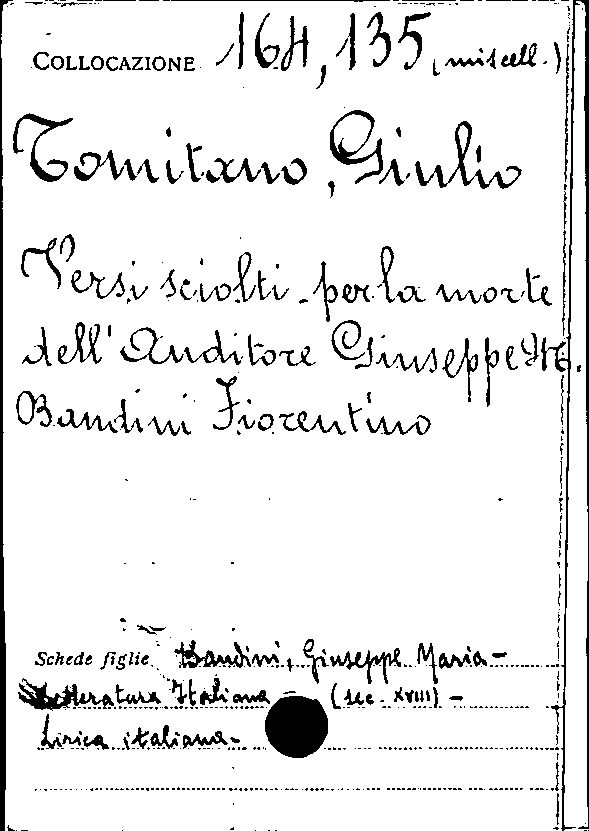 COLLOCAZIONE 164, 135, (miscell.)
Tomitano, Giulio
Versi sciolti per la morte
dell' Auditore Giuseppe M.
Bandini Fiorentino
Schede figlie Bandini, Giuseppe Maria -
Letteratura Italiana - (sec. XVIII) -
Lirica italiana -